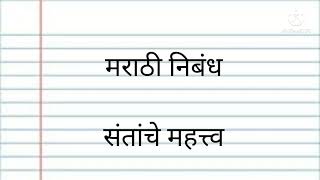 मराठी निबंध
संतांचे महत्त्व